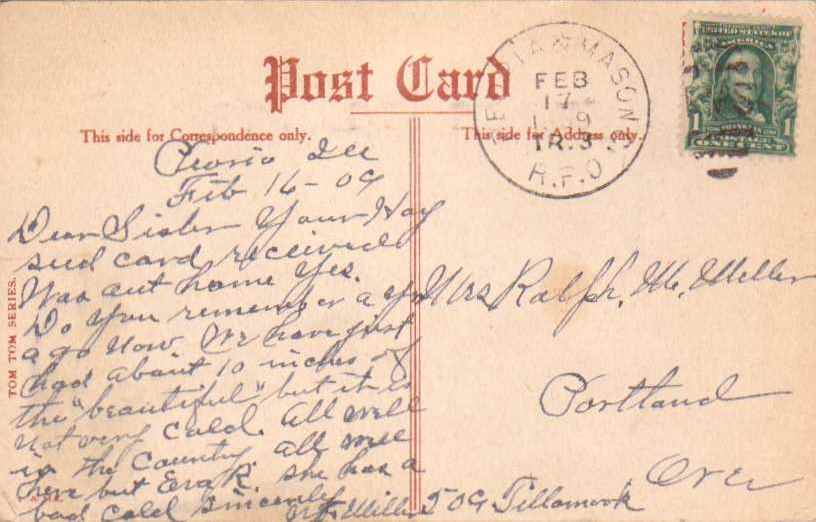 Post Card
This side for Correspondence only.
This side for Address only.
PEORIA & MASON
FEB
17
1909
TR.3
R.P.O.
UNITED STATES OF
AMERICA
1 1
ONE CENT
TOM TOM SERIES.
Peoria Ill
Feb 16-09
Dear Sister Your Hay
seed card received
Was out home Yes.
Do you remember a yr
ago now. We have just
had about 10 inches of
the "beautiful" but it is
not very cold. All well
in the Country all well
here but R. She has a
bad cold Sincerely
Miller
Mrs Ralph. M. Miller
Portland
Ore
509 Tillamook